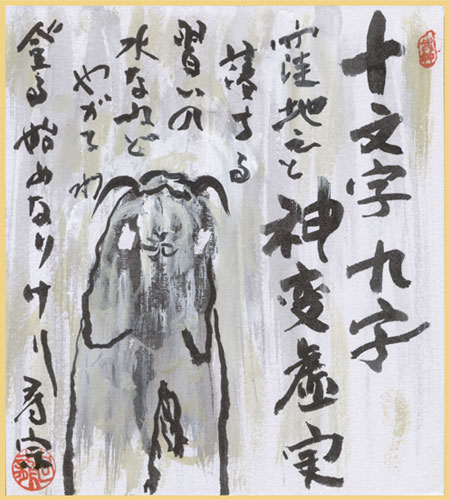 十文字 九字
神変虚実
窪地へと
落する
習いの
水なれど
やがてわ
登る始めなりけり